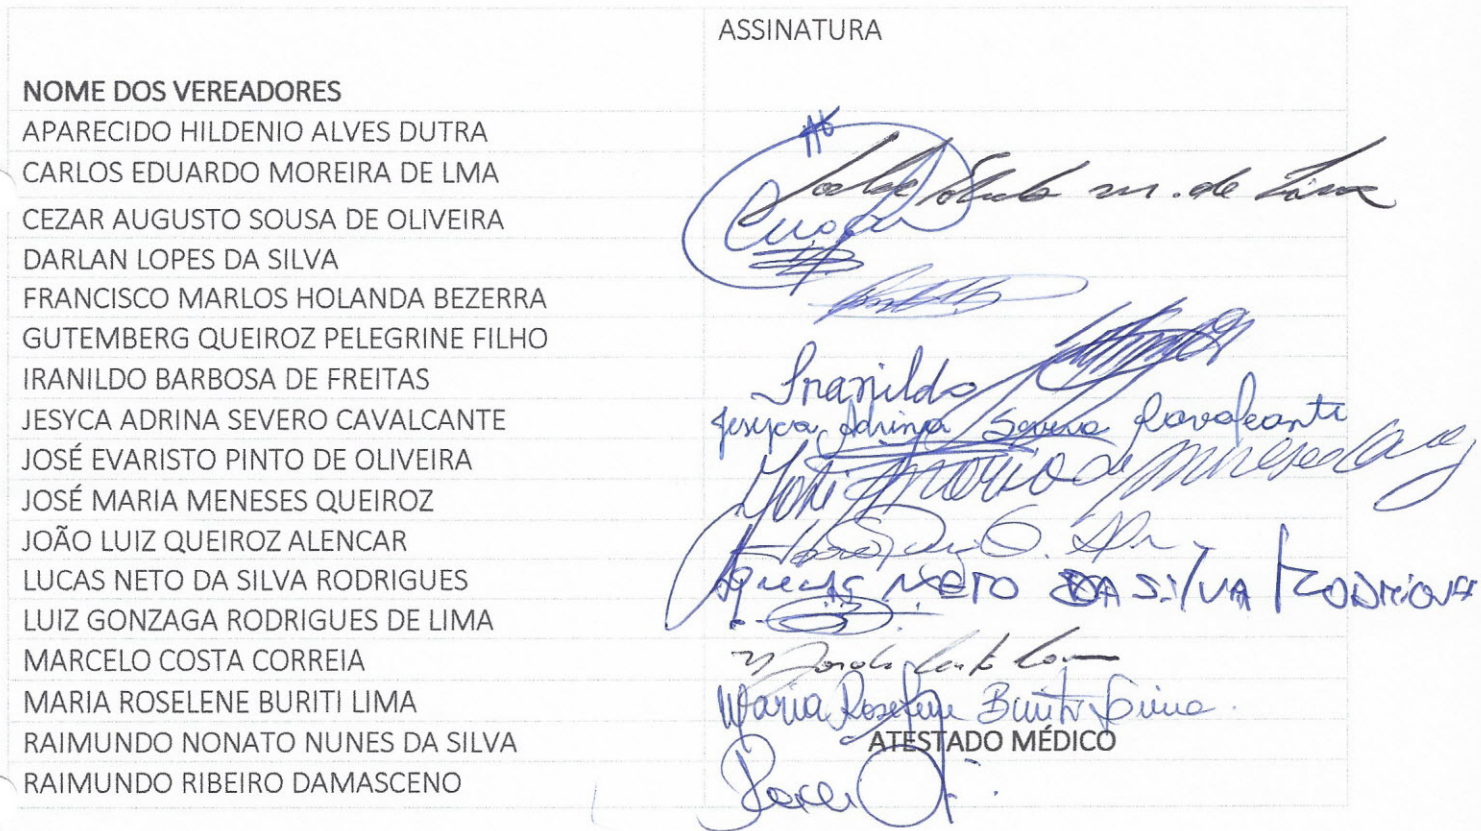 ASSINATURA
NOME DOS VEREADORES
APARECIDO HILDENIO ALVES DUTRA
CARLOS EDUARDO MOREIRA DE LMA m. de Lima
CEZAR AUGUSTO SOUSA DE OLIVEIRA
DARLAN LOPES DA SILVA
FRANCISCO MARLOS HOLANDA BEZERRA
GUTEMBERG QUEIROZ PELEGRINE FILHO
IRANILDO BARBOSA DE FREITAS Iranildo
JESYCA ADRINA SEVERO CAVALCANTE Jesyca Adrina Severo Cavalcante
JOSÉ EVARISTO PINTO DE OLIVEIRA
JOSÉ MARIA MENESES QUEIROZ
JOÃO LUIZ QUEIROZ ALENCAR
LUCAS NETO DA SILVA RODRIGUES LUCAS NETO DA SILVA
LUIZ GONZAGA RODRIGUES DE LIMA
MARCELO COSTA CORREIA
MARIA ROSELENE BURITI LIMA Maria Roselene Buriti Lima
RAIMUNDO NONATO NUNES DA SILVA ATESTADO MÉDICO
RAIMUNDO RIBEIRO DAMASCENO